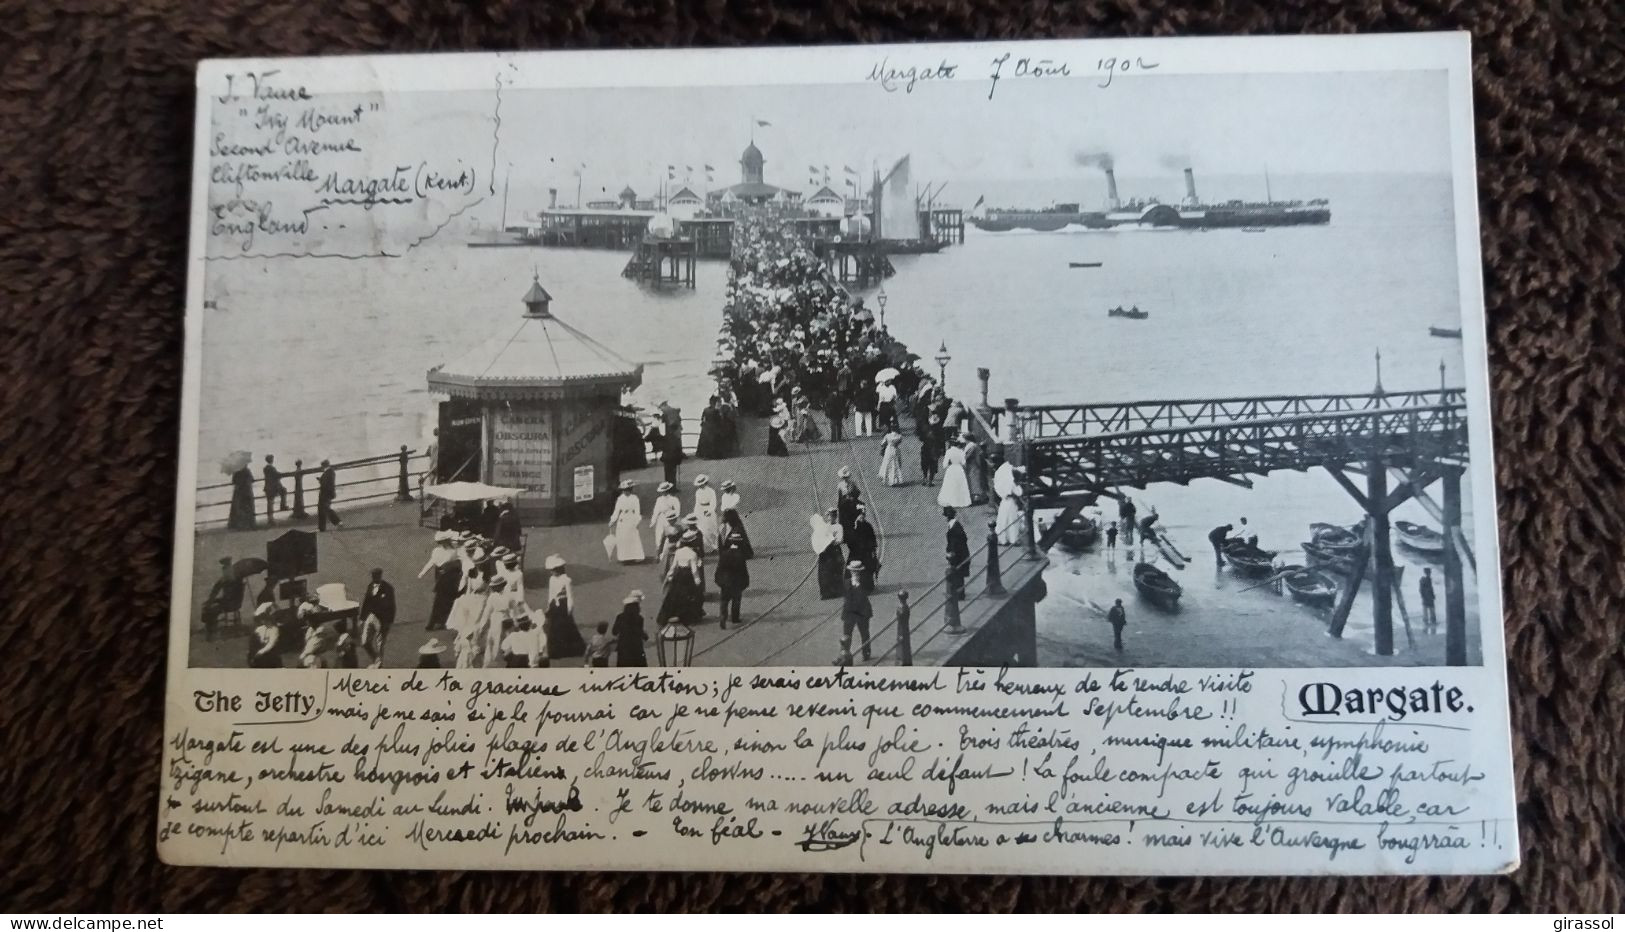 Margate 7 Août 1902
J. Vaure
"Ivy Mount"
Second Avenue
Cliftonville Margate (Kent.)
England..
NOW OPEN
CAMERA
OBSCURA
CHANGE
OBSCURA
The Jetty.
Margate.
Merci de ta gracieuse invitation; je serais certainement très heureux de te rendre visite
mais je ne sais si je le pourrai car je ne pense revenir que commencement Septembre!!
Margate est une des plus jolies plages de l'Angleterre, sinon la plus jolie. Trois théâtres, musique militaire, symphonie
tzigane, orchestre hongrois et italien, chanteurs, clowns...... un seul défaut! La foule compacte qui grouille partout
surtout du Samedi au Lundi. Je te donne ma nouvelle adresse, mais l'ancienne est toujours valable, car
je compte repartir d'ici Mercredi prochain. - Ton féal - JVaure
L'Angleterre a ses charmes! mais vive l'Auvergne bougrrââ!!
girassol